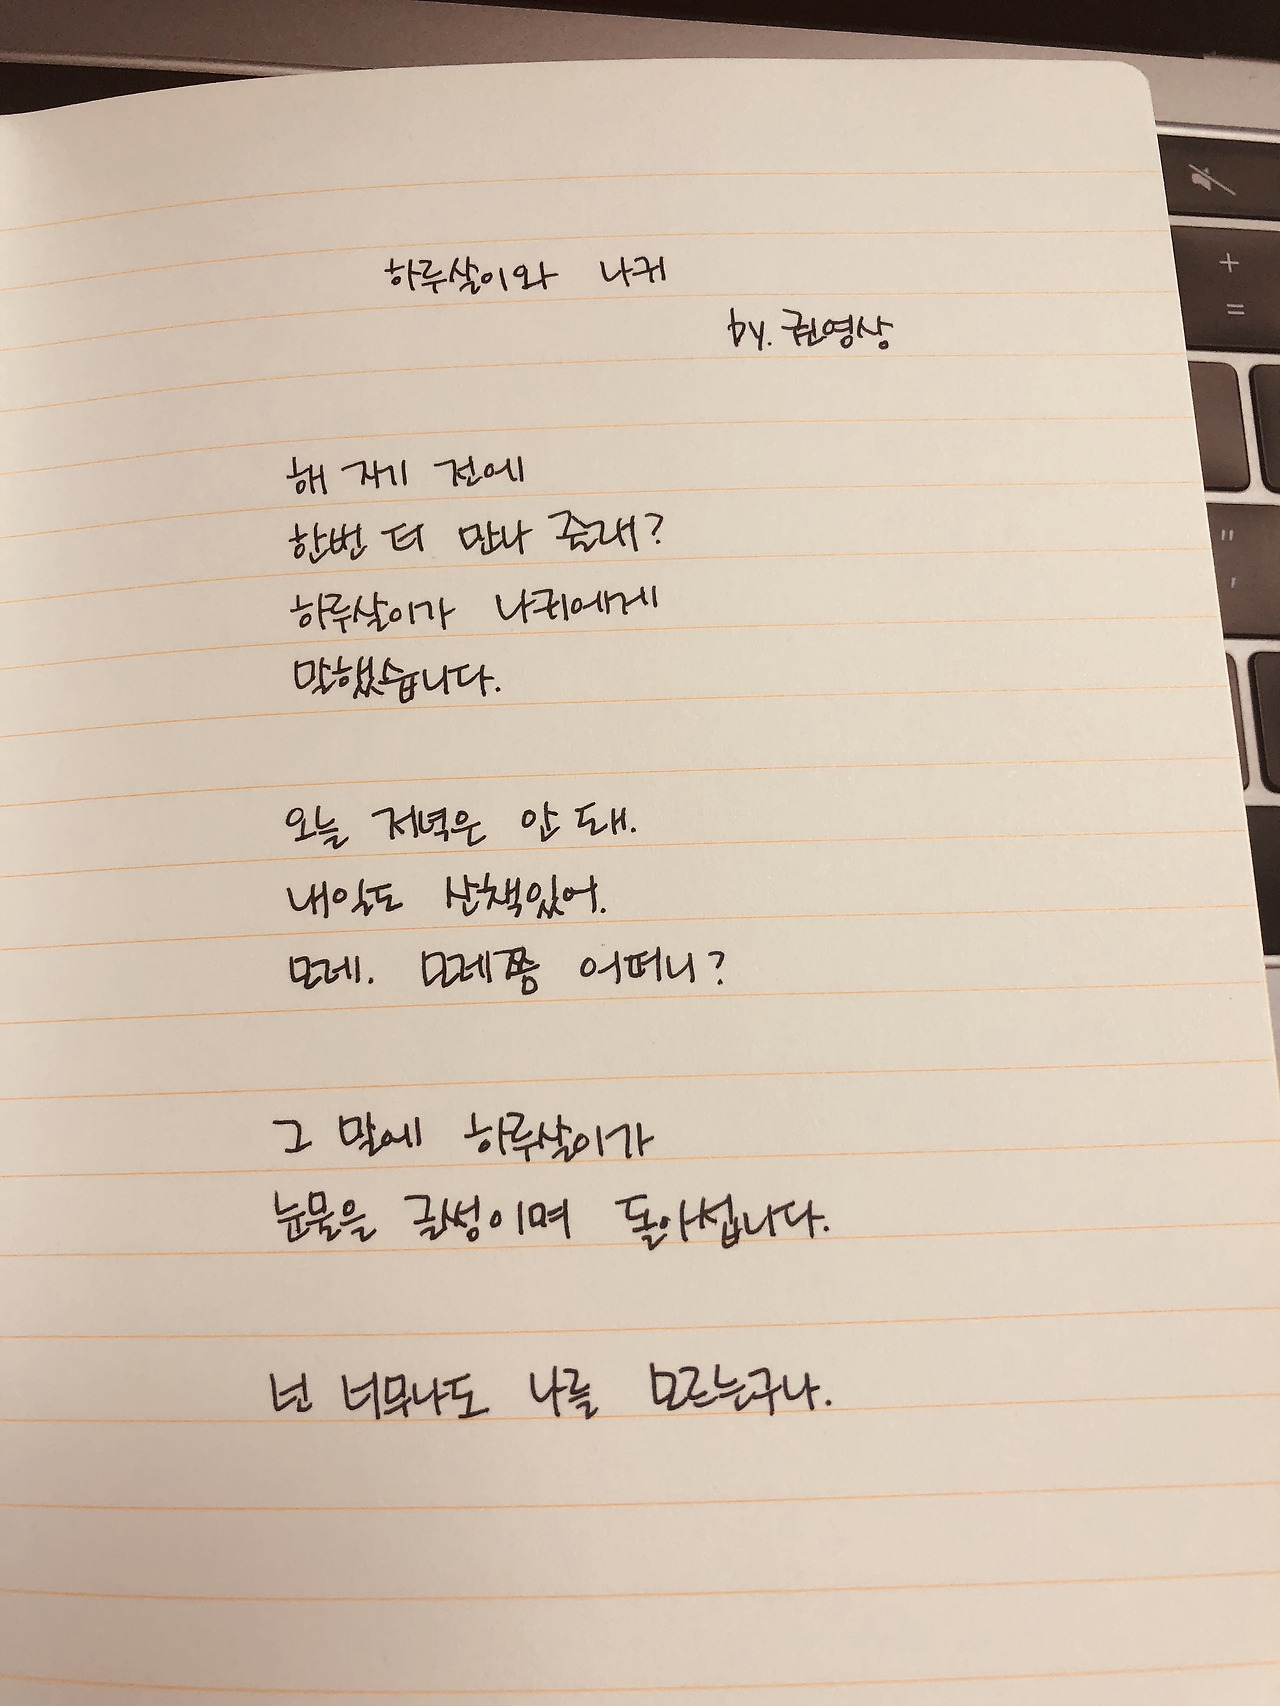 하루살이와 나귀
by. 권영상
해 지기 전에
한번 더 만나 줄래?
하루살이가 나귀에게
말했습니다.
오늘 저녁은 안 돼.
내일도 산책있어.
모레. 모레쯤 어떠니?
그 말에 하루살이가
눈물을 글썽이며 돌아섭니다.
넌 너무나도 나를 모르는구나.
+
=
"
'